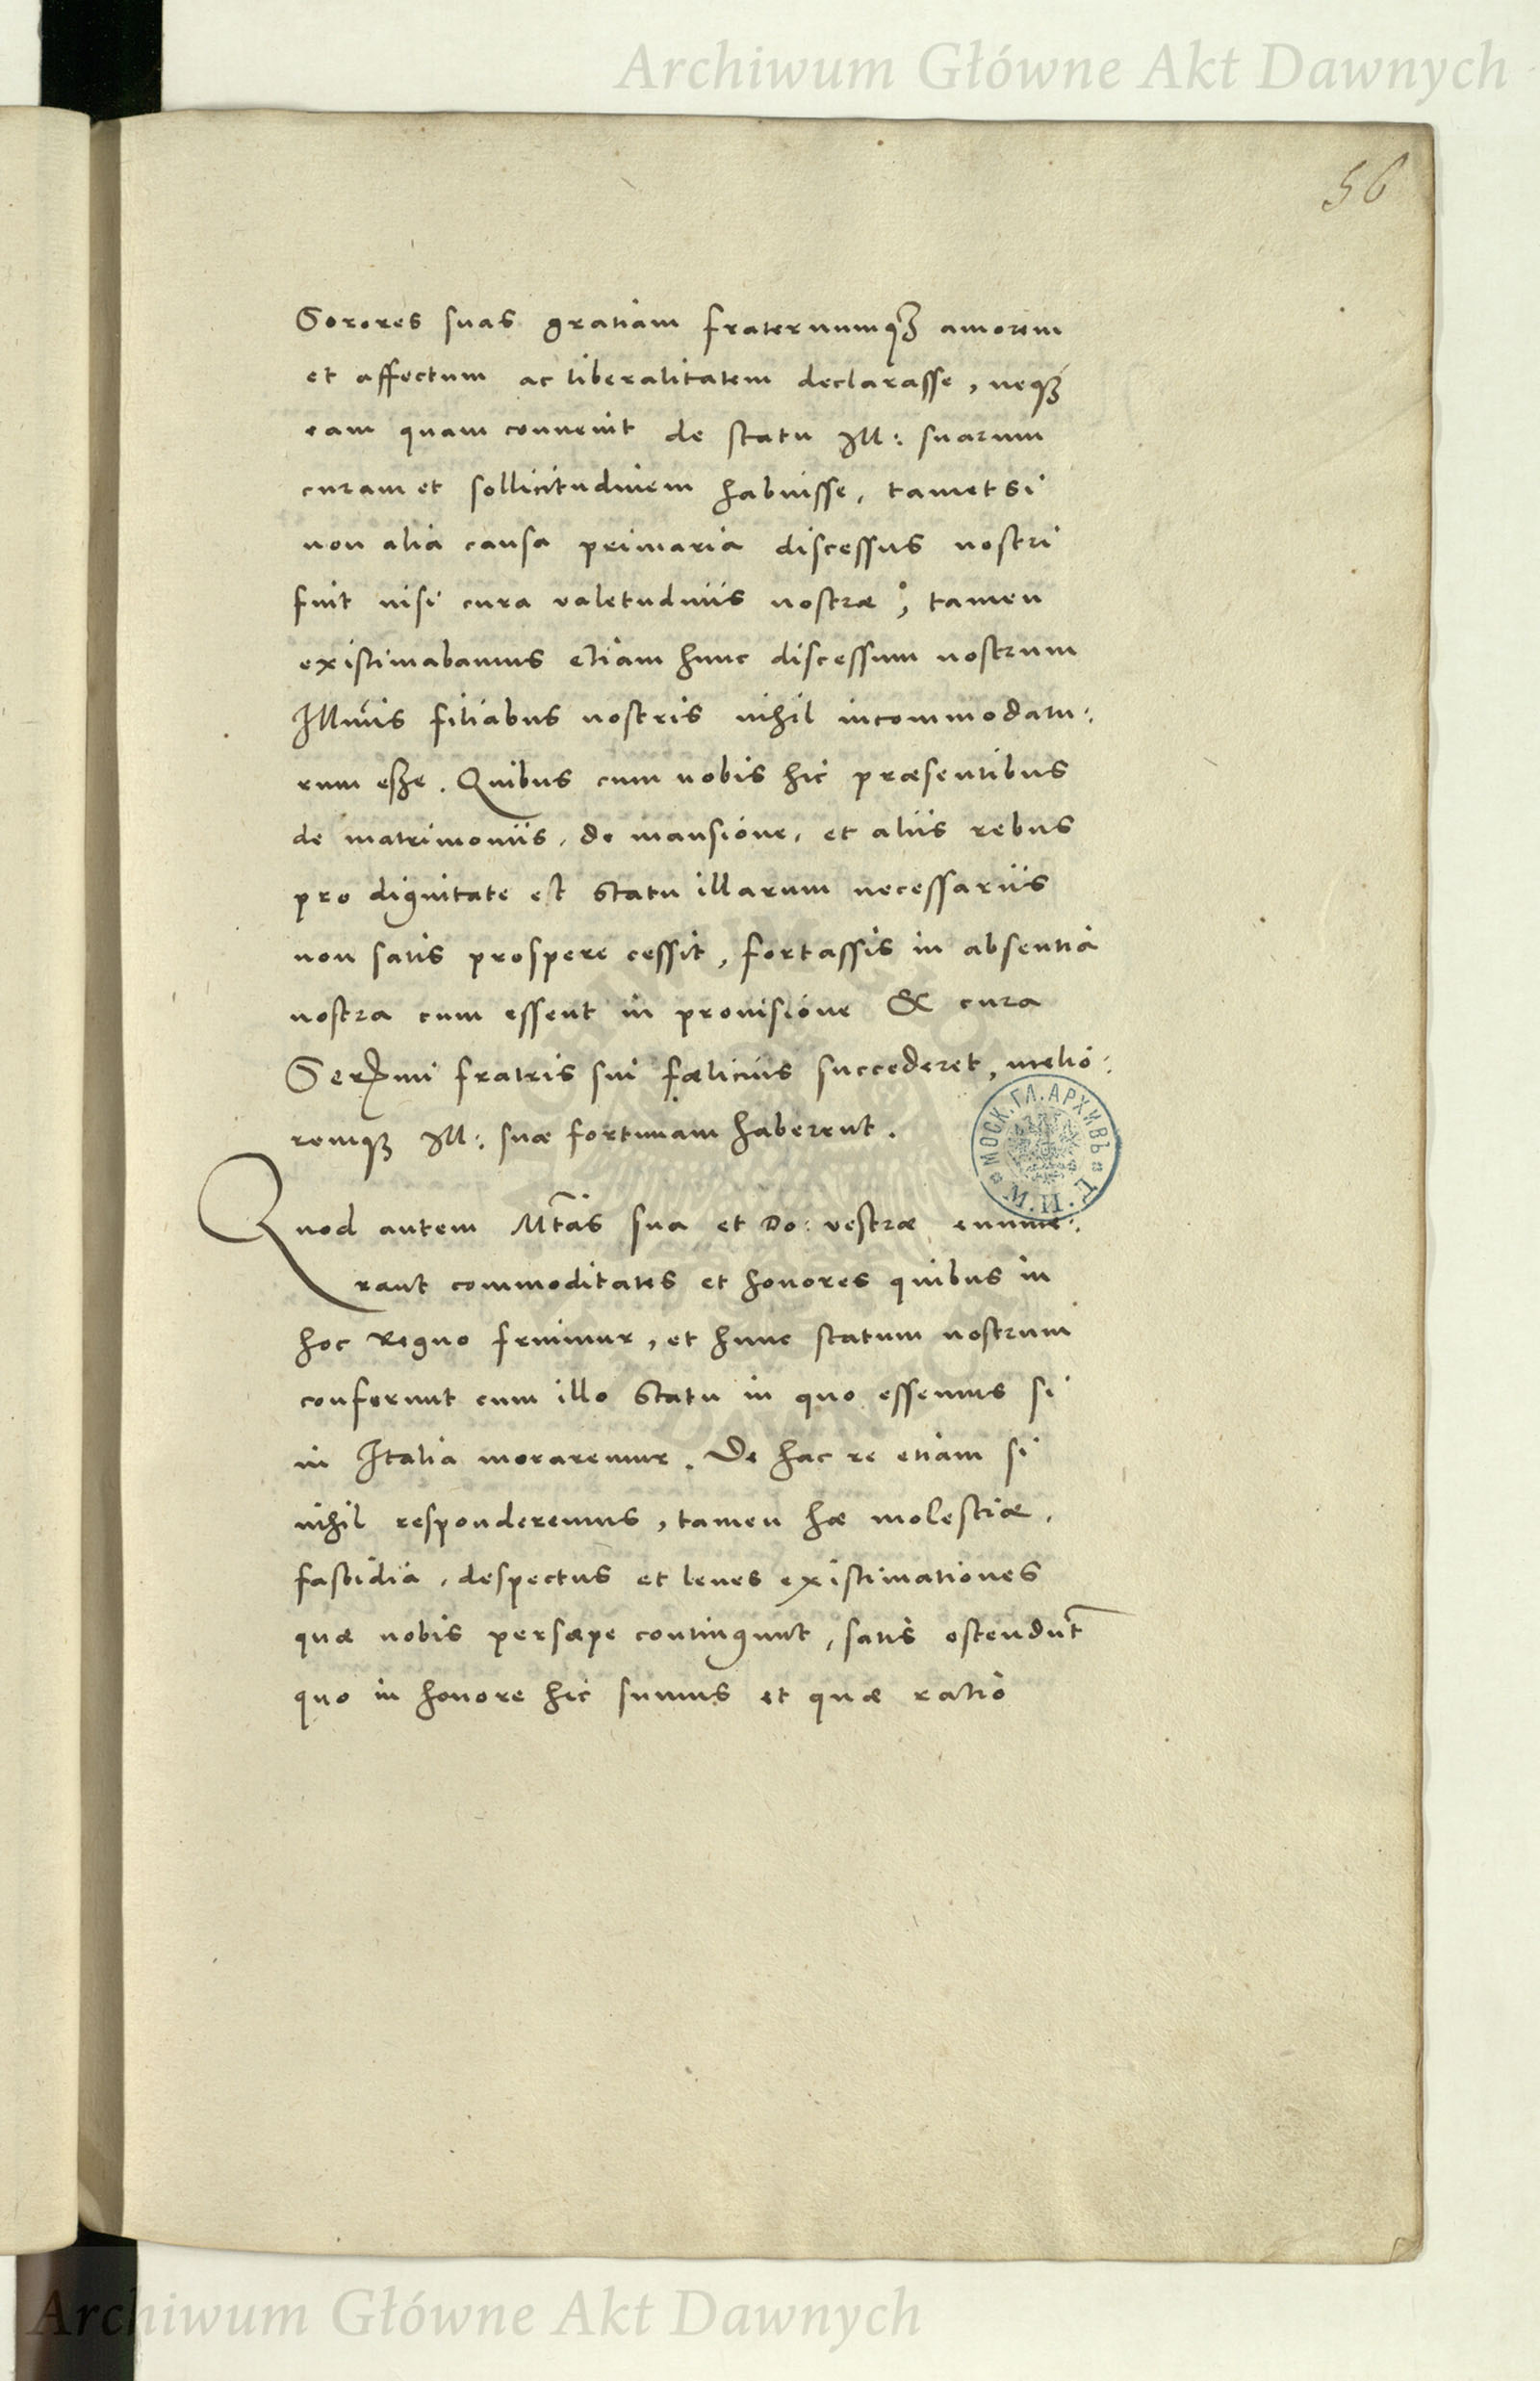 Archiwum Główne Akt Dawnych
56
Sorores suas gratiam fraternumq3 amorem
et affectum ac liberalitatem declarasse, neq3
eam quam convenit de statu Ill: suarum
curam et sollicitudinem habuisse, tametsi
non alia causa primaria discessus nostri
fuit nisi cura valetudinis nostræ; tamen
existimabamus etiam hunc discessum nostrum
Illmis filiabus nostris nihil incommodatu:
rum esse. Quibus cum nobis hic præsentibus
de matrimoniis, de mansione, et aliis rebus
pro dignitate et statu illarum necessariis
non satis prospere cessit, fortassis in absentia
nostra cum essent in provisione & cura
Sermi fratris sui fælicius succederet, melio:
remq3 Ill: suæ fortunam haberent.
МОСК. ГЛ. АРХИВЪ М. И. Д.
Quod autem Mtas sua et Do: vestræ enume:
rant commoditates et honores quibus in
hoc Regno fruimur, et hunc statum nostrum
conferunt cum illo statu in quo essemus si
in Italia moraremur. De hac re etiam si
nihil responderemus, tamen hæ molestiæ,
fastidia, despectus et leves existimationes
quæ nobis persæpe contingunt, satis ostendunt
quo in honore hic sumus et quæ ratio
Archiwum Główne Akt Dawnych